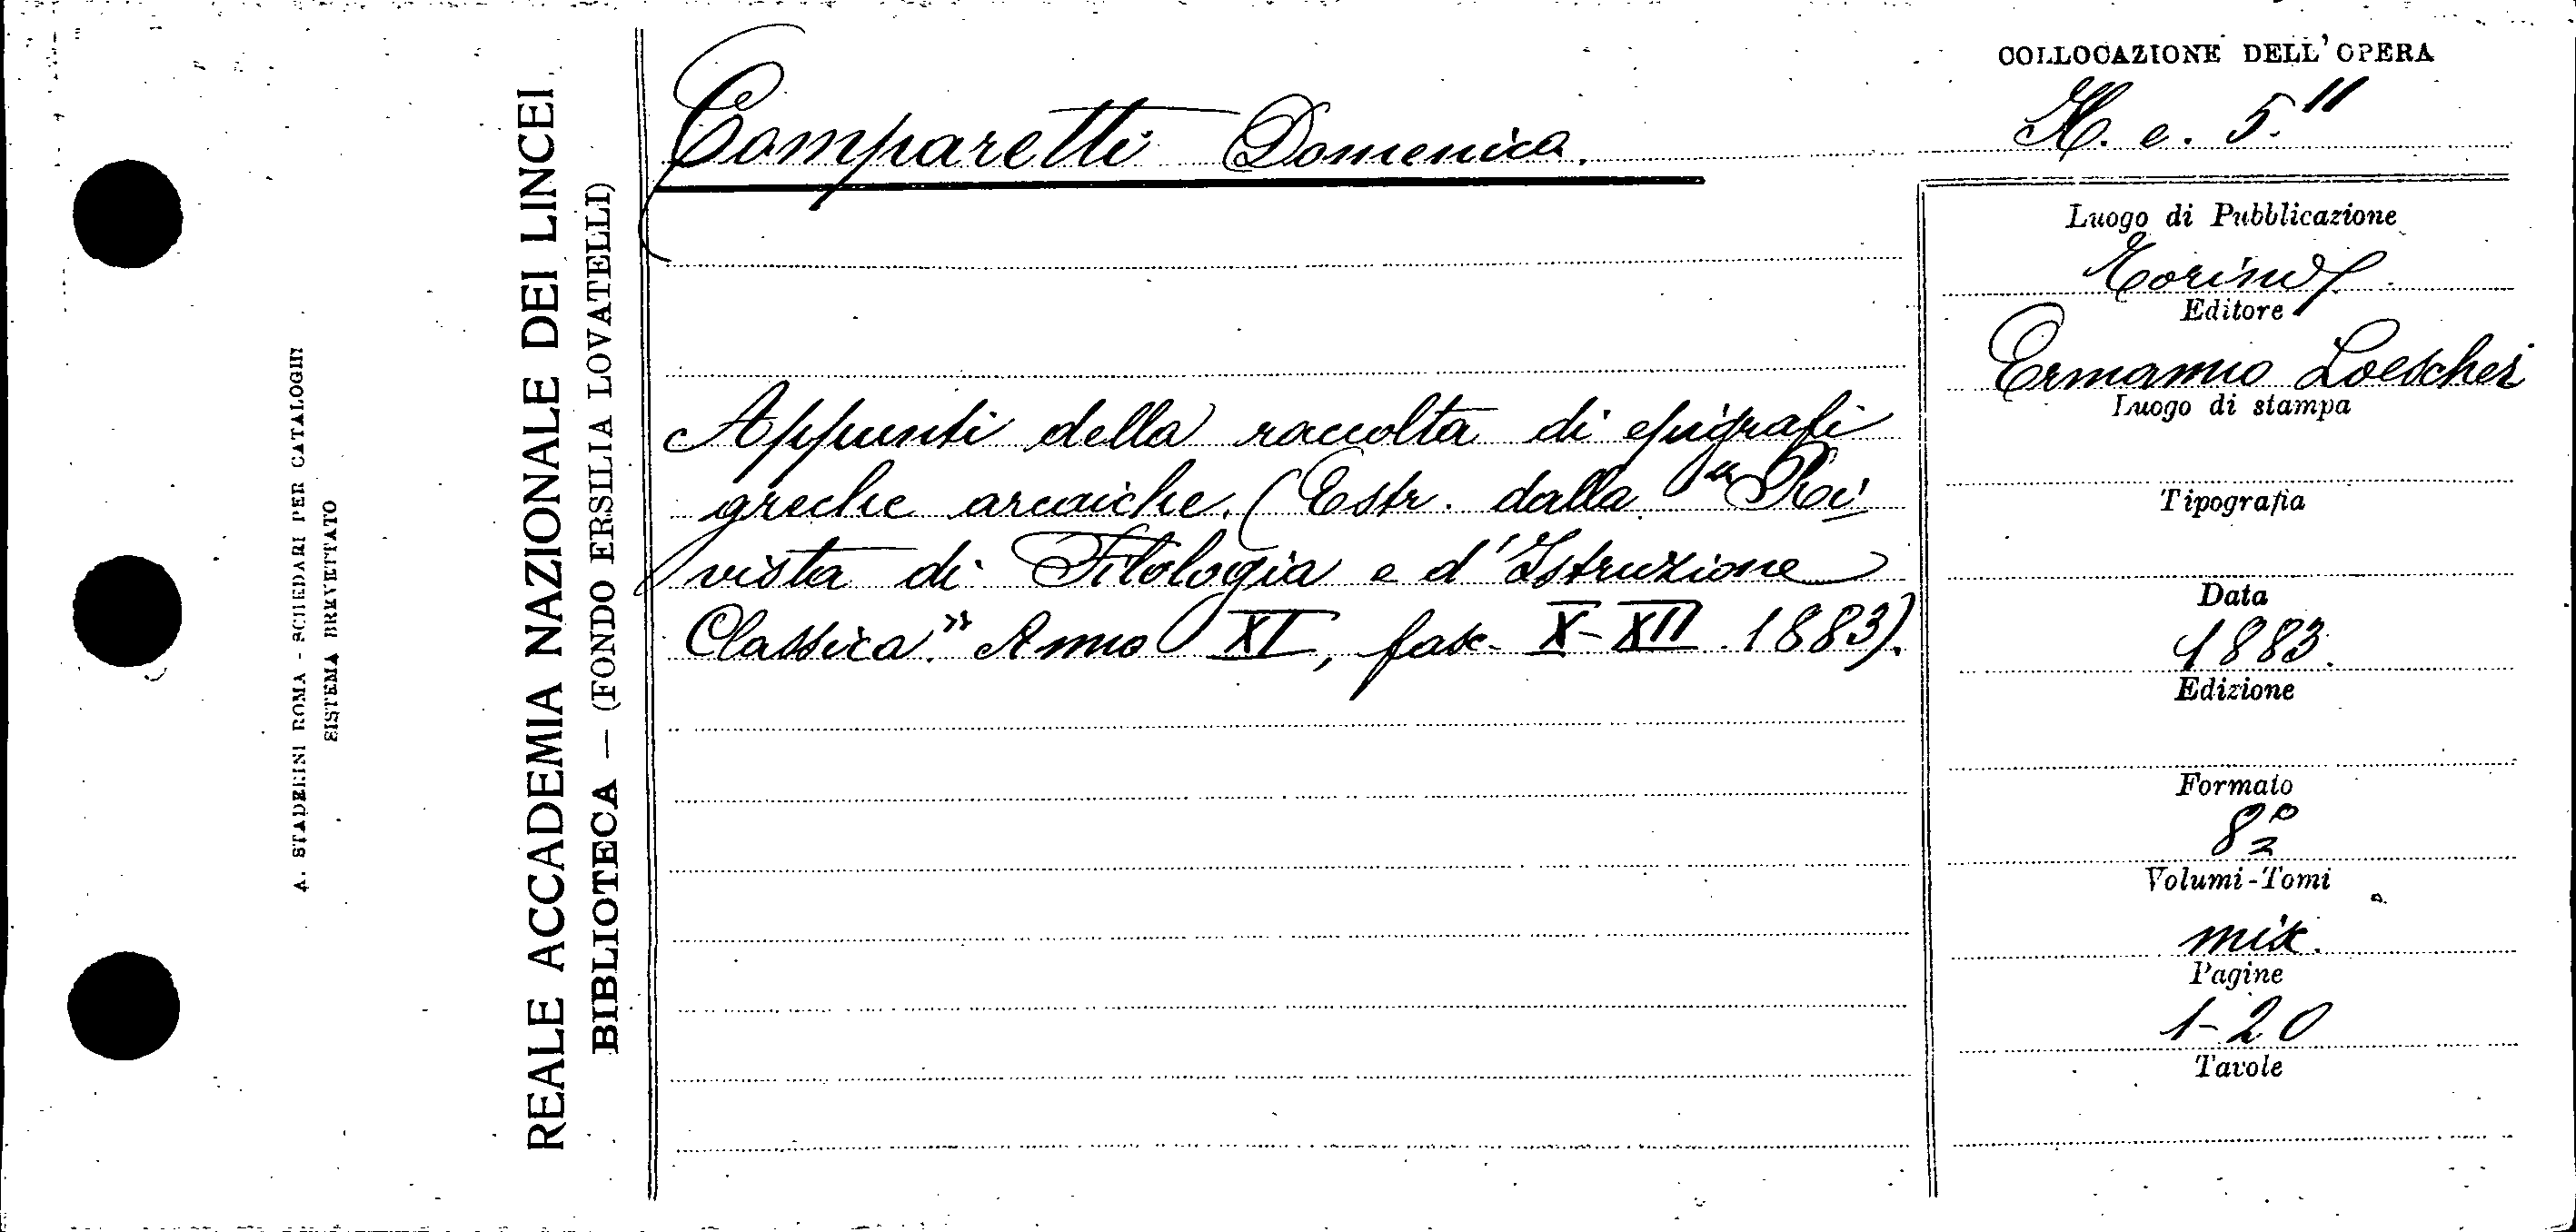 A. STADERINI ROMA - SCHEDARI PER CATALOGHI
SISTEMA BREVETTATO
REALE ACCADEMIA NAZIONALE DEI LINCEI
BIBLIOTECA — (FONDO ERSILIA LOVATELLI)
Comparetti Domenico.
Appunti della raccolta di epigrafi
greche arcaiche. (Estr. dalla "Ri
vista di Filologia e d'Istruzione
Classica." Anno XI, fasc. X-XII. 1883).
COLLOCAZIONE DELL'OPERA
H. e. 5.11
Luogo di Pubblicazione
Torino
Editore
Ermanno Loescher
Luogo di stampa
Tipografia
Data
1883.
Edizione
Formato
8º
Volumi-Tomi
mix.
Pagine
1-20
Tavole